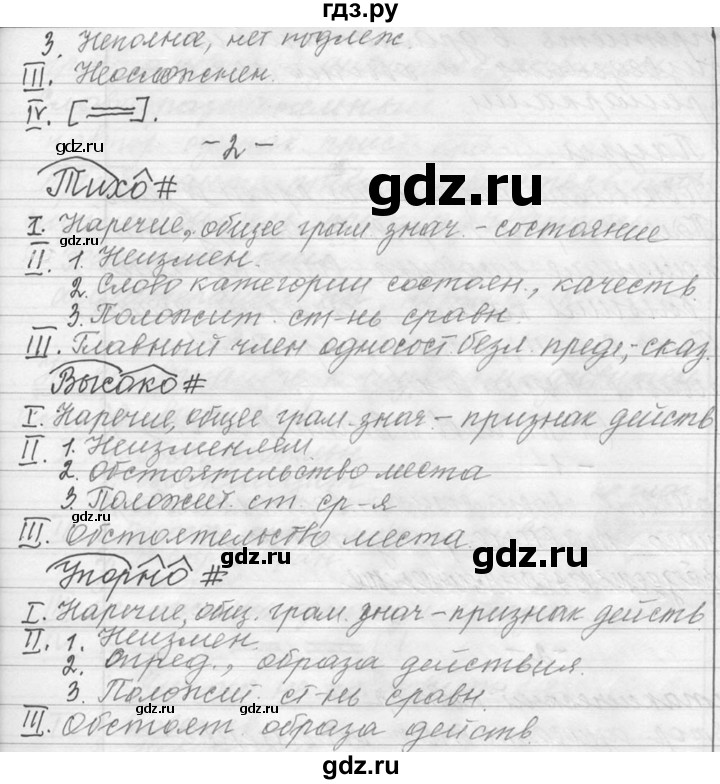 гдз.ру
3. Неполное, нет подлеж.
III. Неосложнен.
IV. [═══].
gdz.ru
- 2 -
gdz.ru
Тихо #
I. Наречие, общее грам. знач. - состояние
gdz.ru
II. 1. Неизмен.
2. Слово категории состоян., качеств.
3. Положит. ст-нь сравн.
III. Главный член односост. безл. предл, - сказ.
gdz.ru
Высоко #
I. Наречие, общее грам. знач. - признак действ
II. 1. Неизменяем.
2. обстоятельство места
3. Положит. ст. ср-я
gdz.ru
III. Обстоятельство места
gdz.ru
gdz.ru
Упорно #
I. Наречие, общ. грам. знач - признак действ.
II. 1. Неизмен.
2. Опред., образа действия.
3. Положит. ст-нь сравн.
gdz.ru
gdz.ru
III. Обстоят образа действ.
gdz.ru